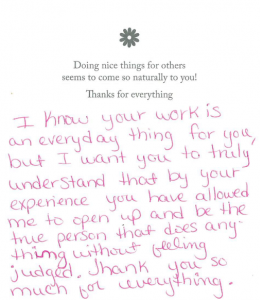 Doing nice things for others
seems to come so naturally to you!
Thanks for everything
I know your work is
an everyday thing for you,
but I want you to truly
understand that by your
experience you have allowed
me to open up and be the
true person that does any-
thing without feeling
judged. Thank you so
much for everything.